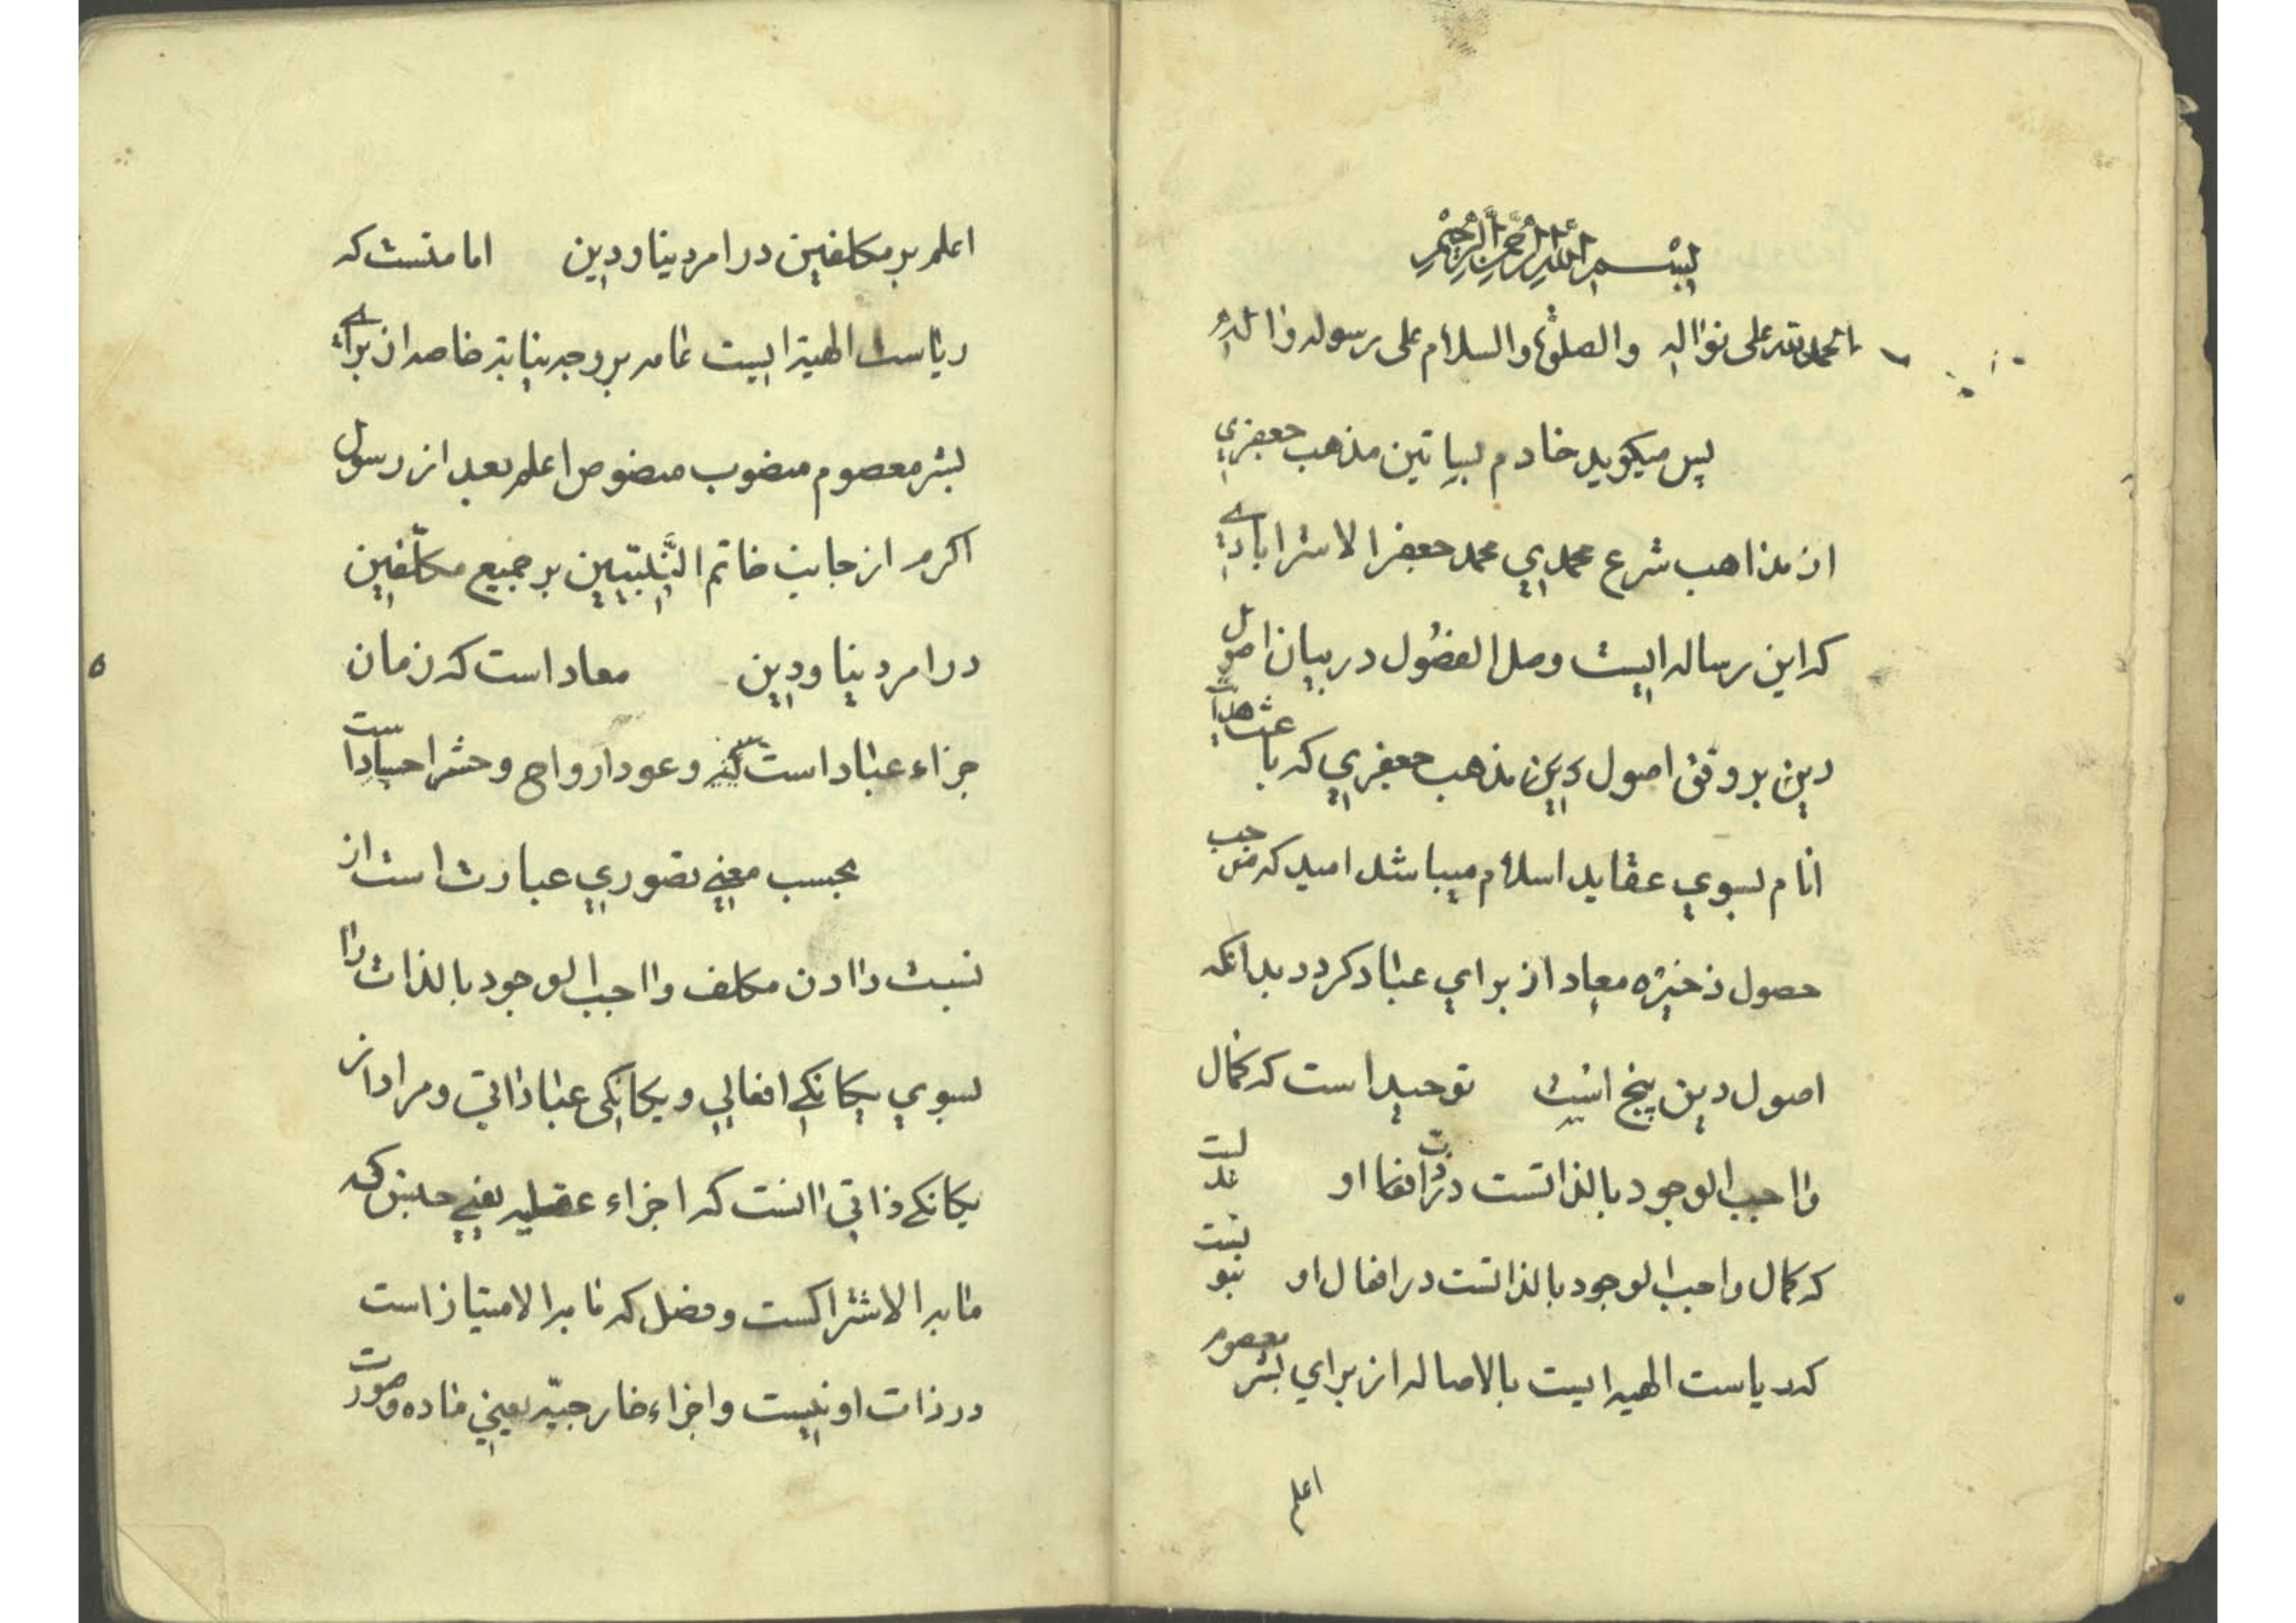 بِسْمِ اللهِ الرَّحْمنِ الرَّحِيْمِ
الحمد لله على نواله والصلوة والسلام على رسوله واله
پس ميكويد خادم بساتين مذهب جعفري
از مذاهب شرع محمدي محمد جعفر الاسترابادي
كه اين رساله ايست وصل الفصُول در بيان اصول
دين بر وفق اصول دين مذهب جعفري كه باعث هدايت
انام بسوي عقايد اسلام ميباشد اميد كه موجب
حصول ذخيره معاد از براي عباد كردد بدانكه
اصول دين پنج است توحيد است كه كمال
واجب الوجود بالذاتست در ذات و افعال او عدلست
كه كمال واجب الوجود بالذاتست در افعال او نبوتست
كه رياست الهيه ايست بالاصاله از براي بشر معصوم
اعلم
اعلم بر مكلفين در امر دينا و دين امامتست كه
رياست الهية ايست عامه بر وجه نيابة خاصه از براي
بشر معصوم منصوب منصوص اعلم بعد از رسول
اكرم از جانب خاتم النَّبيّين بر جميع مكلّفين
در امر دينا و دين معاد است كه زمان
جزاء عباد است و عود ارواح و حشر اجساد است
بحسب معني تصوري عبارت است از
نسبت دادن مكلف واجب الوجود بالذات را
بسوي يكانكي افعالي و يكانكى ذاتي و مراد از
يكانكي ذاتي انست كه اجزاء عقليه يعني جنس كه
مابه الاشتراكست و فصل كه مابه الامتياز است
در ذات او نيست و اجزاء خارجيّه يعني ماده و صورت